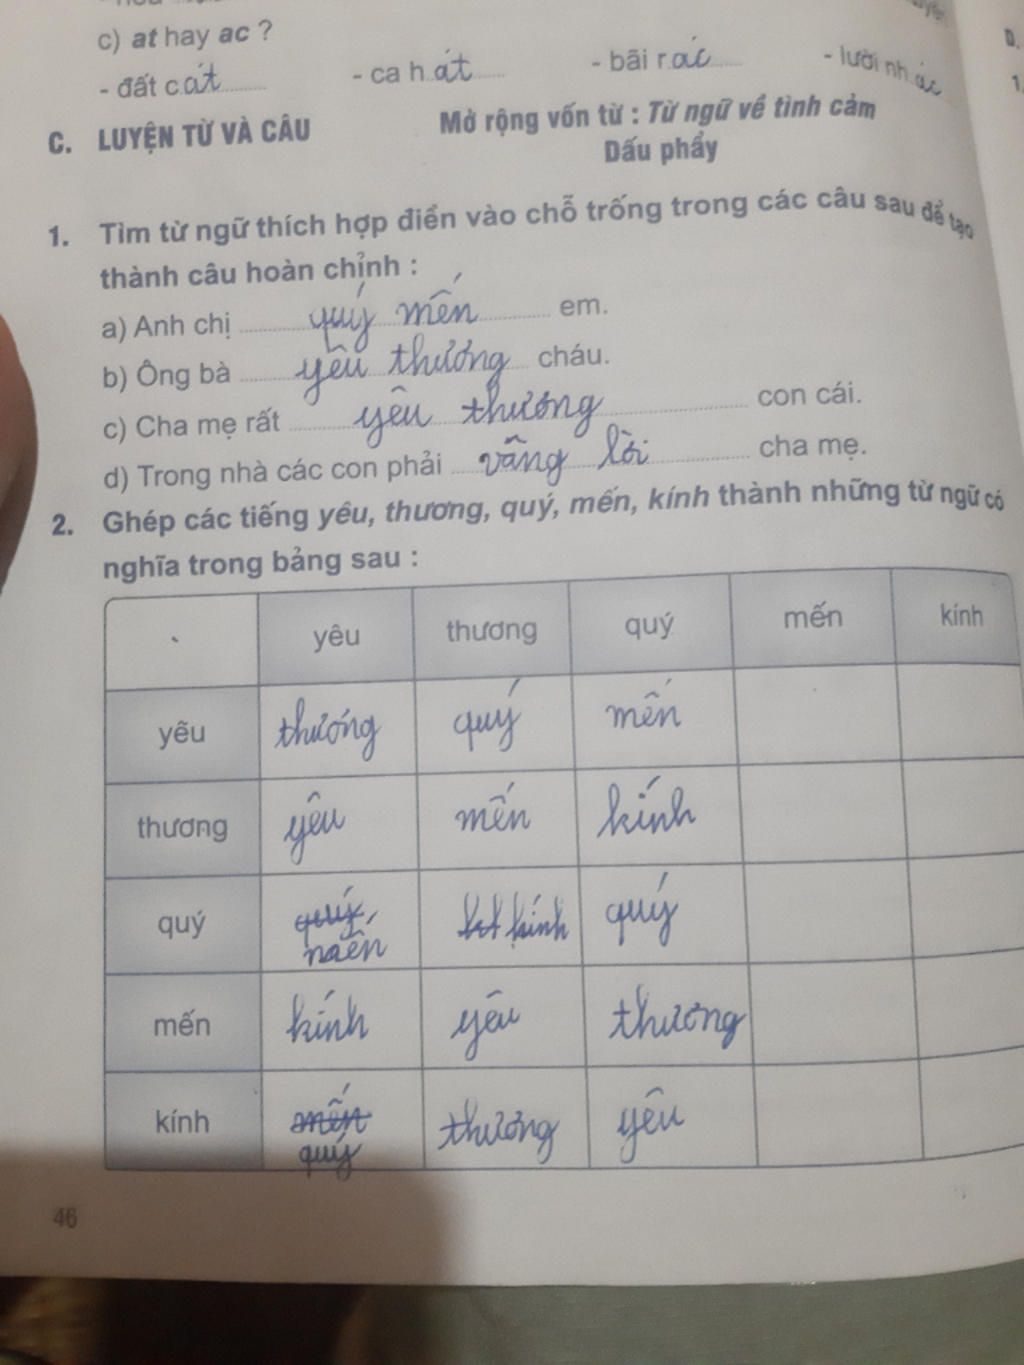 c) at hay ac ?
- đất cát - ca hát - bãi rác - lười nhác
C. LUYỆN TỪ VÀ CÂU
Mở rộng vốn từ : Từ ngữ về tình cảm
Dấu phẩy
1. Tìm từ ngữ thích hợp điền vào chỗ trống trong các câu sau để tạo
thành câu hoàn chỉnh :
a) Anh chị quý mến em.
b) Ông bà yêu thương cháu.
c) Cha mẹ rất yêu thương con cái.
d) Trong nhà các con phải vâng lời cha mẹ.
2. Ghép các tiếng yêu, thương, quý, mến, kính thành những từ ngữ có
nghĩa trong bảng sau :
yêu thương quý mến kính
yêu thương quý mến
thương yêu mến kính
quý mến kính quý
mến kính yêu thương
kính mến thương yêu
quý
46